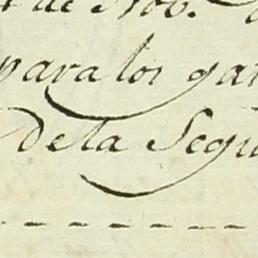 de Nov.
para los gas
de la Segu